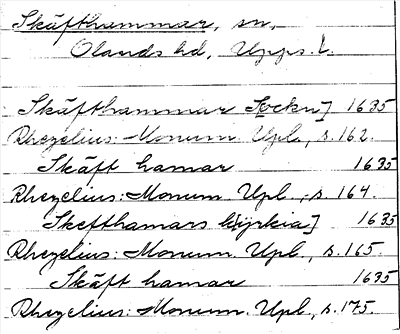 Skäfthammar, sn,
Olands hd, Upps. l.
Skäfthammar S[ockn] 1635
Rhezelius: Monum. Upl., s. 162.
Skäft hamar 1635
Rhezelius: Monum. Upl., s. 164.
Skefthamars k[yrkia] 1635
Rhezelius: Monum. Upl., s. 165.
Skäft hamar 1635
Rhezelius: Monum. Upl., s. 175.